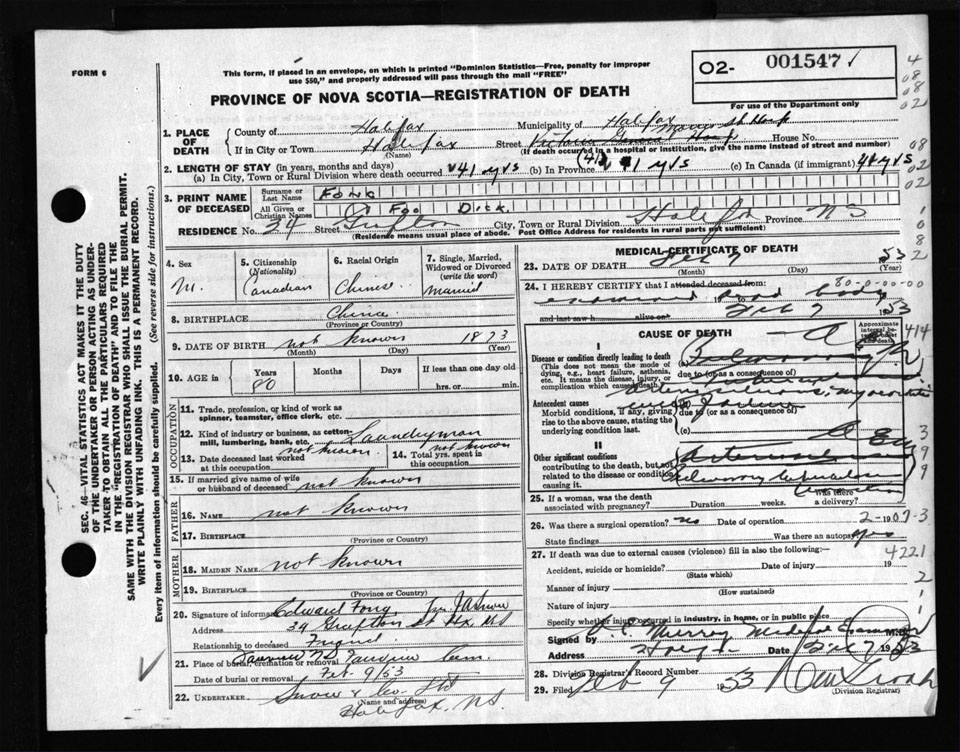 FORM 6
This form, if placed in an envelope, on which is printed "Dominion Statistics—Free, penalty for improper
use $50," and properly addressed will pass through the mail "FREE"
O2- 001547
For use of the Department only
PROVINCE OF NOVA SCOTIA—REGISTRATION OF DEATH
1. PLACE OF DEATH
County of Halifax Municipality of Halifax
If in City or Town Halifax Street Victoria General Hosp House No.
(Name) (If death occurred in a hospital or institution, give the name instead of street and number)
2. LENGTH OF STAY (in years, months and days)
(a) In City, Town or Rural Division where death occurred 41 yrs (b) In Province 41 yrs (c) In Canada (if immigrant) 41 yrs
3. PRINT NAME OF DECEASED
Surname or Last Name Fong
All Given or Christian Names Foo Dick
RESIDENCE No. 34 Street Grafton City, Town or Rural Division Halifax Province NS
(Residence means usual place of abode. Post Office Address for residents in rural parts not sufficient)
4. Sex M.
5. Citizenship (Nationality) Canadian
6. Racial Origin Chinese
7. Single, Married, Widowed or Divorced (write the word) Married
8. BIRTHPLACE China
(Province or Country)
9. DATE OF BIRTH not known 1873
(Month) (Day) (Year)
10. AGE in Years Months Days If less than one day old
80 hrs. or min.
OCCUPATION
11. Trade, profession, or kind of work as
spinner, teamster, office clerk, etc.
12. Kind of industry or business, as cotton-
mill, lumbering, bank, etc. Laundryman
13. Date deceased last worked at this occupation not known
14. Total yrs. spent in this occupation not known
15. If married give name of wife
or husband of deceased not known
FATHER
16. Name not known
17. BIRTHPLACE
(Province or Country)
MOTHER
18. MAIDEN NAME not known
19. BIRTHPLACE
(Province or Country)
20. Signature of informant Edward Fong
Address 34 Grafton St Hx NS
Relationship to deceased Friend
21. Place of burial, cremation or removal Fairview Cem.
Date of burial or removal Feb. 9/53
22. UNDERTAKER Snow & Co Ltd
(Name and Address)
Halifax, NS.
MEDICAL CERTIFICATE OF DEATH
23. DATE OF DEATH Feb 7 1953
(Month) (Day) (Year)
80-0-00-00
24. I HEREBY CERTIFY that I attended deceased from:
examined dead body to
and last saw h alive on Feb 7 1953
CAUSE OF DEATH
Approximate interval between onset and death
I
Disease or condition directly leading to death
(This does not mean the mode of
dying, e.g., heart failure, asthenia,
etc. It means the disease, injury, or
complication which caused death)
(a)
due to (or as a consequence of)
Antecedent causes
Morbid conditions, if any, giving
rise to the above cause, stating the
underlying condition last.
(b)
due to (or as a consequence of)
(c)
II
Other significant conditions
contributing to the death, but not
related to the disease or condition
causing it.
25. If a woman, was the death
associated with pregnancy? Duration weeks. Was there a delivery?
26. Was there a surgical operation? no Date of operation
State findings Was there an autopsy? yes
27. If death was due to external causes (violence) fill in also the following:
Accident, suicide or homicide? Date of injury 19
(State which)
Manner of injury
(How sustained)
Nature of injury
Specify whether injury occurred in industry, in home, or in public place
Signed by Murray Medical Examiner M.D.
Address Date Feb 7 1953
28. Division Registrar's Record Number
29. Filed Feb 9 1953
(Division Registrar)
414
4221
SEC. 46—VITAL STATISTICS ACT MAKES IT THE DUTY
OF THE UNDERTAKER OR PERSON ACTING AS UNDER-
TAKER TO OBTAIN ALL THE PARTICULARS REQUIRED
IN THE "REGISTRATION OF DEATH" AND TO FILE THE
SAME WITH THE DIVISION REGISTRAR WHO SHALL ISSUE THE BURIAL PERMIT.
WRITE PLAINLY WITH UNFADING INK. THIS IS A PERMANENT RECORD.
Every item of information should be carefully supplied. (See reverse side for instructions.)